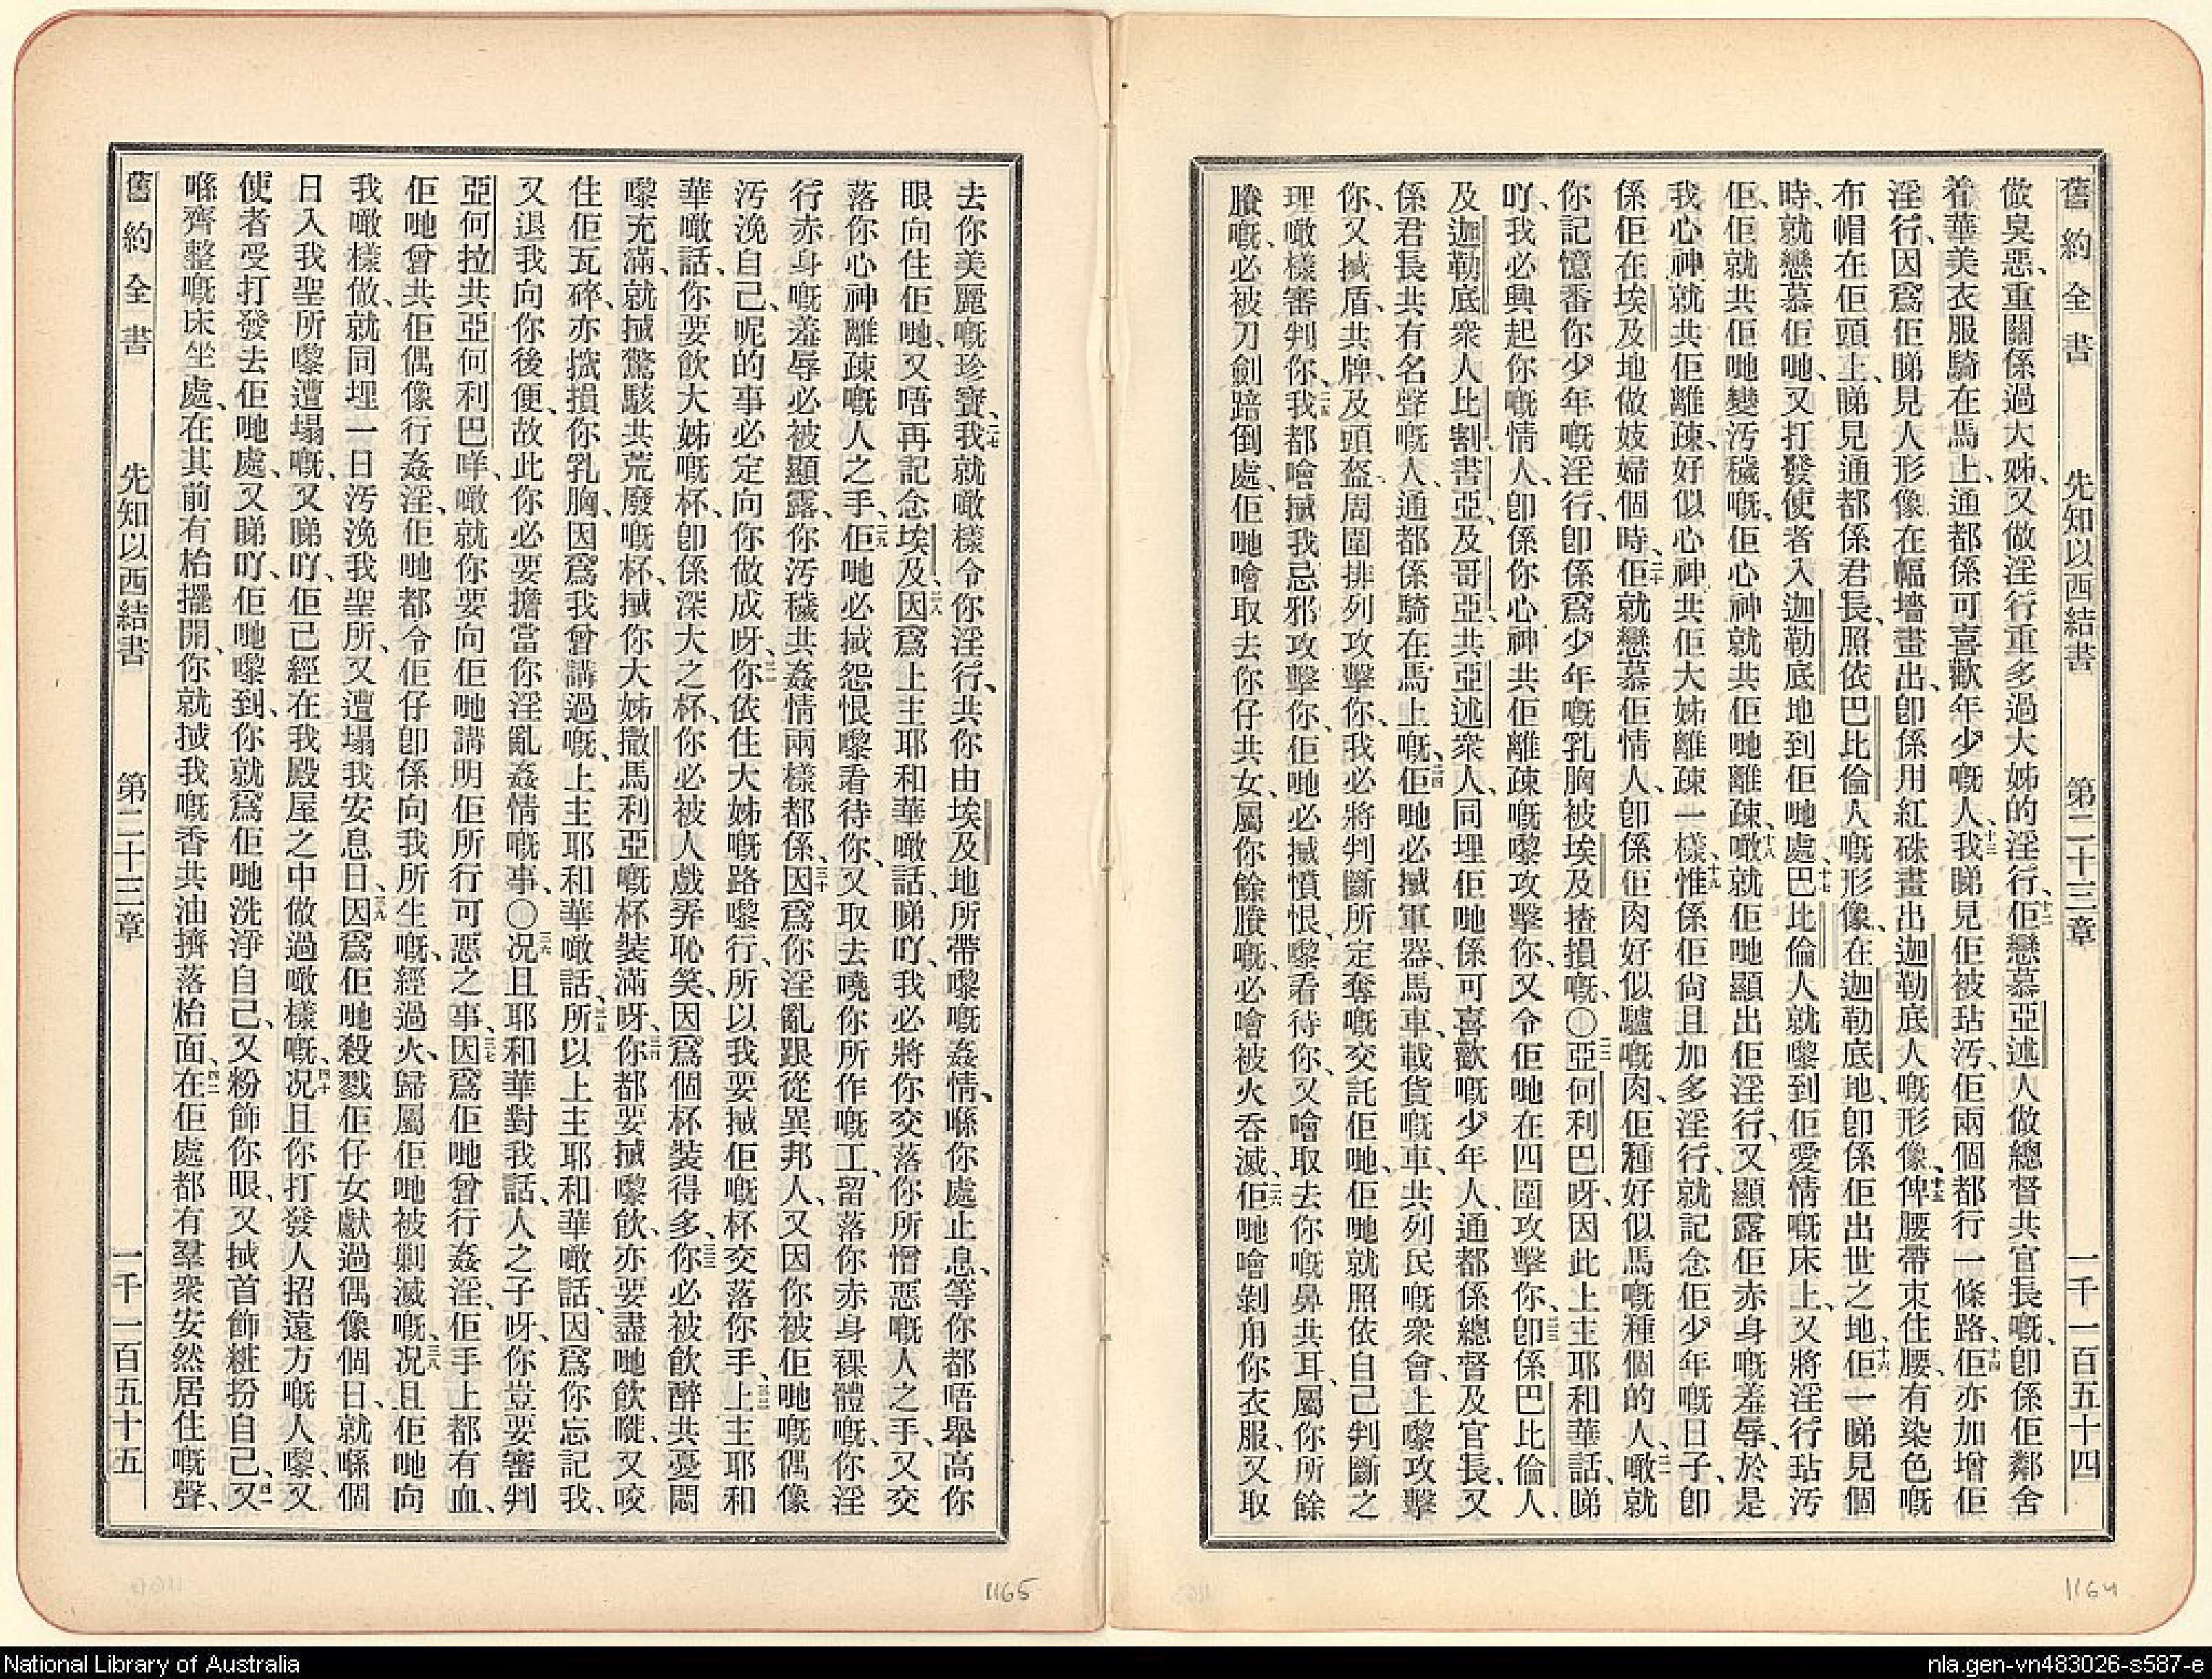 舊約全書　先知以西結書　第二十三章　一千一百五十四
做臭惡、重關係過大姊、又做淫行重多過大姊的淫行、十二佢戀慕亞述人做總督共官長嘅、卽係佢鄰舍
着華美衣服騎在馬上、通都係可喜歡年少嘅人、十三我睇見佢被玷汚、佢兩個都行一條路、十四佢亦加增佢
淫行、因爲佢睇見人形像在幅墻畫出、卽係用紅硃畫出迦勒底人嘅形像、十五俾腰帶束住腰、有染色嘅
布帽在佢頭上、睇見通都係君長、照依巴比倫人嘅形像、在迦勒底地、卽係佢出世之地、十六佢一睇見個
時、就戀慕佢哋、又打發使者入迦勒底地到佢哋處、十七巴比倫人就嚟到佢愛情嘅床上、又將淫行玷汚
佢、佢就共佢哋變汚穢嘅、佢心神就共佢哋離疎、十八噉就佢哋顯出佢淫行、又顯露佢赤身嘅羞辱、於是
我心神就共佢離疎、好似心神共佢大姊離疎一樣、十九惟係佢尙且加多淫行、就記念佢少年嘅日子、卽
係佢在埃及地做妓婦個時、二十佢就戀慕佢情人、卽係佢肉好似驢嘅肉、佢種好似馬嘅種個的人、二一噉就
你記憶番你少年嘅淫行、卽係爲少年嘅乳胸被埃及揸損嘅、〇二二亞何利巴呀、因此上主耶和華話、睇
吖、我必興起你嘅情人、卽係你心神共佢離疎嘅嚟攻擊你、又令佢哋在四圍攻擊你、二三卽係巴比倫人、
及迦勒底衆人、比割、書亞、及哥亞、共亞述衆人、同埋佢哋係可喜歡嘅少年人、通都係總督及官長、又
係君長共有名聲嘅人、通都係騎在馬上嘅、二四佢哋必搣軍器、馬車、載貨嘅車、共列民嘅衆會、上嚟攻擊
你、又搣盾、共牌、及頭盔周圍排列攻擊你、我必將判斷所定奪嘅交託佢哋、佢哋就照依自己判斷之
理噉樣審判你、二五我都噲搣我忌邪攻擊你、佢哋必搣憤恨嚟看待你、又噲取去你嘅鼻共耳、屬你所餘
賸嘅、必被刀劍踣倒處、佢哋噲取去你仔共女、屬你餘賸嘅、必噲被火吞滅、二六佢哋噲剝甩你衣服、又取
去你美麗嘅珍寶、二七我就噉樣令你淫行、共你由埃及地所帶嚟嘅姦情、喺你處止息、等你都唔舉高你
眼向住佢哋、又唔再記念埃及、二八因爲上主耶和華噉話、睇吖、我必將你交落你所憎惡嘅人之手、又交
落你心神離疎嘅人之手、二九佢哋必搣怨恨嚟看待你、又取去曉你所作嘅工、留落你赤身裸體嘅、你淫
行赤身嘅羞辱必被顯露、你汚穢共姦情兩樣都係、三十因爲你淫亂跟從異邦人、又因你被佢哋嘅偶像
汚浼自己、呢的事必定向你做成呀、三一你依住大姊嘅路嚟行、所以我要搣佢嘅杯交落你手、三二上主耶和
華噉話、你要飮大姊嘅杯、卽係深大之杯、你必被人戲弄恥笑、因爲個杯裝得多、三三你必被飮醉共憂悶
嚟充滿、就搣驚駭共荒廢嘅杯、搣你大姊撒馬利亞嘅杯裝滿呀、三四你都要搣嚟飮、亦要盡哋飮嘥、又咬
住佢瓦碎、亦搲損你乳胸、因爲我曾講過嘅、上主耶和華噉話、三五所以上主耶和華噉話、因爲你忘記我、
又退我向你後便、故此你必要擔當你淫亂姦情嘅事、〇三六况且耶和華對我話、人之子呀、你豈要審判
亞何拉共亞何利巴咩、噉就你要向佢哋講明佢所行可惡之事、三七因爲佢哋曾行姦淫、佢手上都有血、
佢哋曾共佢偶像行姦淫、佢哋都令佢仔卽係向我所生嘅、經過火、歸屬佢哋被剿滅嘅、三八况且佢哋向
我噉樣做、就同埋一日汚浼我聖所、又遭塌我安息日、三九因爲佢哋殺戮佢仔女獻過偶像個日、就喺個
日入我聖所嚟遭塌嘅、又睇吖、佢已經在我殿屋之中做過噉樣嘅、四十况且你打發人招遠方嘅人嚟、又
使者受打發去佢哋處、又睇吖、佢哋嚟到、你就爲佢哋洗淨自己、又粉飾你眼、又搣首飾粧扮自己、四一又
喺齊整嘅床坐處、在其前有枱擺開、你就搣我嘅香共油擠落枱面、四二在佢處都有羣衆安然居住嘅聲、
舊約全書　先知以西結書　第二十三章　一千一百五十五
1165
1164
National Library of Australia
nla.gen-vn483026-s587-e